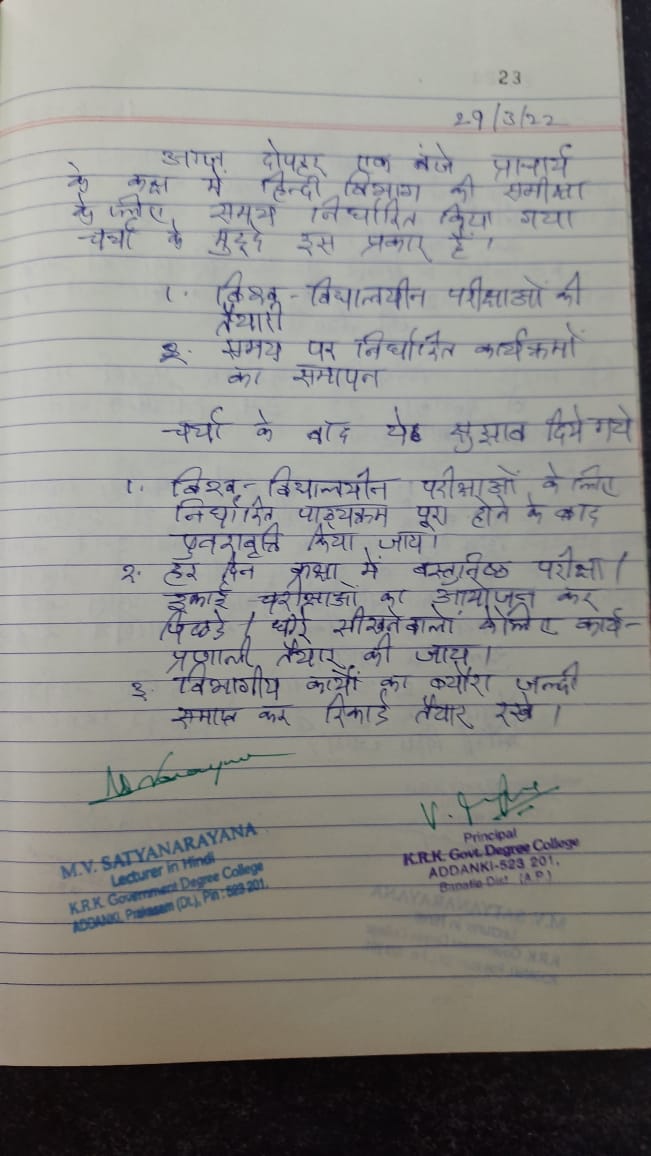 23
29/3/22
आज दोपहर एक बजे प्राचार्य
के कक्ष में हिन्दी विभाग की समीक्षा
के लिए समय निर्धारित किया गया
चर्चा के मुद्दे इस प्रकार हैं।
1. विश्व-विद्यालयीन परीक्षाओं की
तैयारी
2. समय पर निर्धारित कार्यक्रमों
का समापन
चर्चा के बाद ये सुझाव दिये गये
1. विश्व-विद्यालयीन परीक्षाओं के लिए
निर्धारित पाठ्यक्रम पूरा होने के बाद
पुनरावृत्ति किया जाय।
2. हर दिन कक्षा में वस्तुनिष्ठ परीक्षा/
इकाई परीक्षाओं का आयोजन कर
पिछडे/धीरे सीखनेवालों के लिए कार्य-
प्रणाली तैयार की जाय।
3. विभागीय कार्यों का ब्यौरा जल्दी
समाप्त कर रिकार्ड तैयार रखे।
M.V. SATYANARAYANA
Lecturer in Hindi
K.R.K. Government Degree College
ADDANKI, Prakasam (Dt.), Pin : 523 201.
Principal
K.R.K. Govt. Degree College
ADDANKI-523 201.
Bapatla Dist. (A.P.)